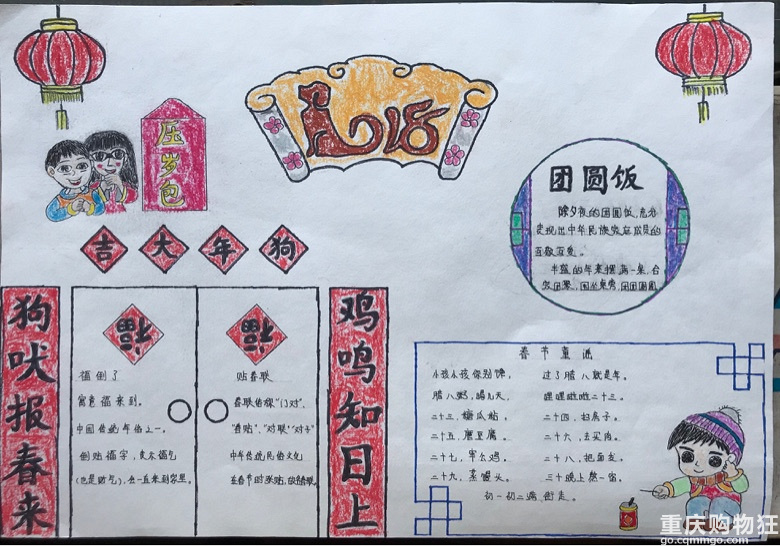 压岁包
吉大年狗
狗吠报春来
福
福倒了
寓意福来到。
中国传统年俗之一。
倒贴福字,表示福气
(也是财气),会一直来到家里。
福
贴春联
春联俗称“门对”、
“春贴”、“对联”、“对子”
中华传统民俗文化
在春节时张贴,故称春联。
鸡鸣知日上
团圆饭
除夕夜的团圆饭,充分
表现出中华民族家庭成员的
互敬互爱。
丰盛的年菜摆满一桌,合
家团聚,围坐桌旁,团团圆圆
春节童谣
小孩小孩你别馋, 过了腊八就是年。
腊八粥,喝几天, 哩哩啦啦二十三。
二十三,糖瓜粘。 二十四,扫房子。
二十五,磨豆腐。 二十六,去买肉。
二十七,宰公鸡。 二十八,把面发。
二十九,蒸馒头。 三十晚上熬一宿。
初一初二满街走。
重庆购物狂
go.cqmmgo.com